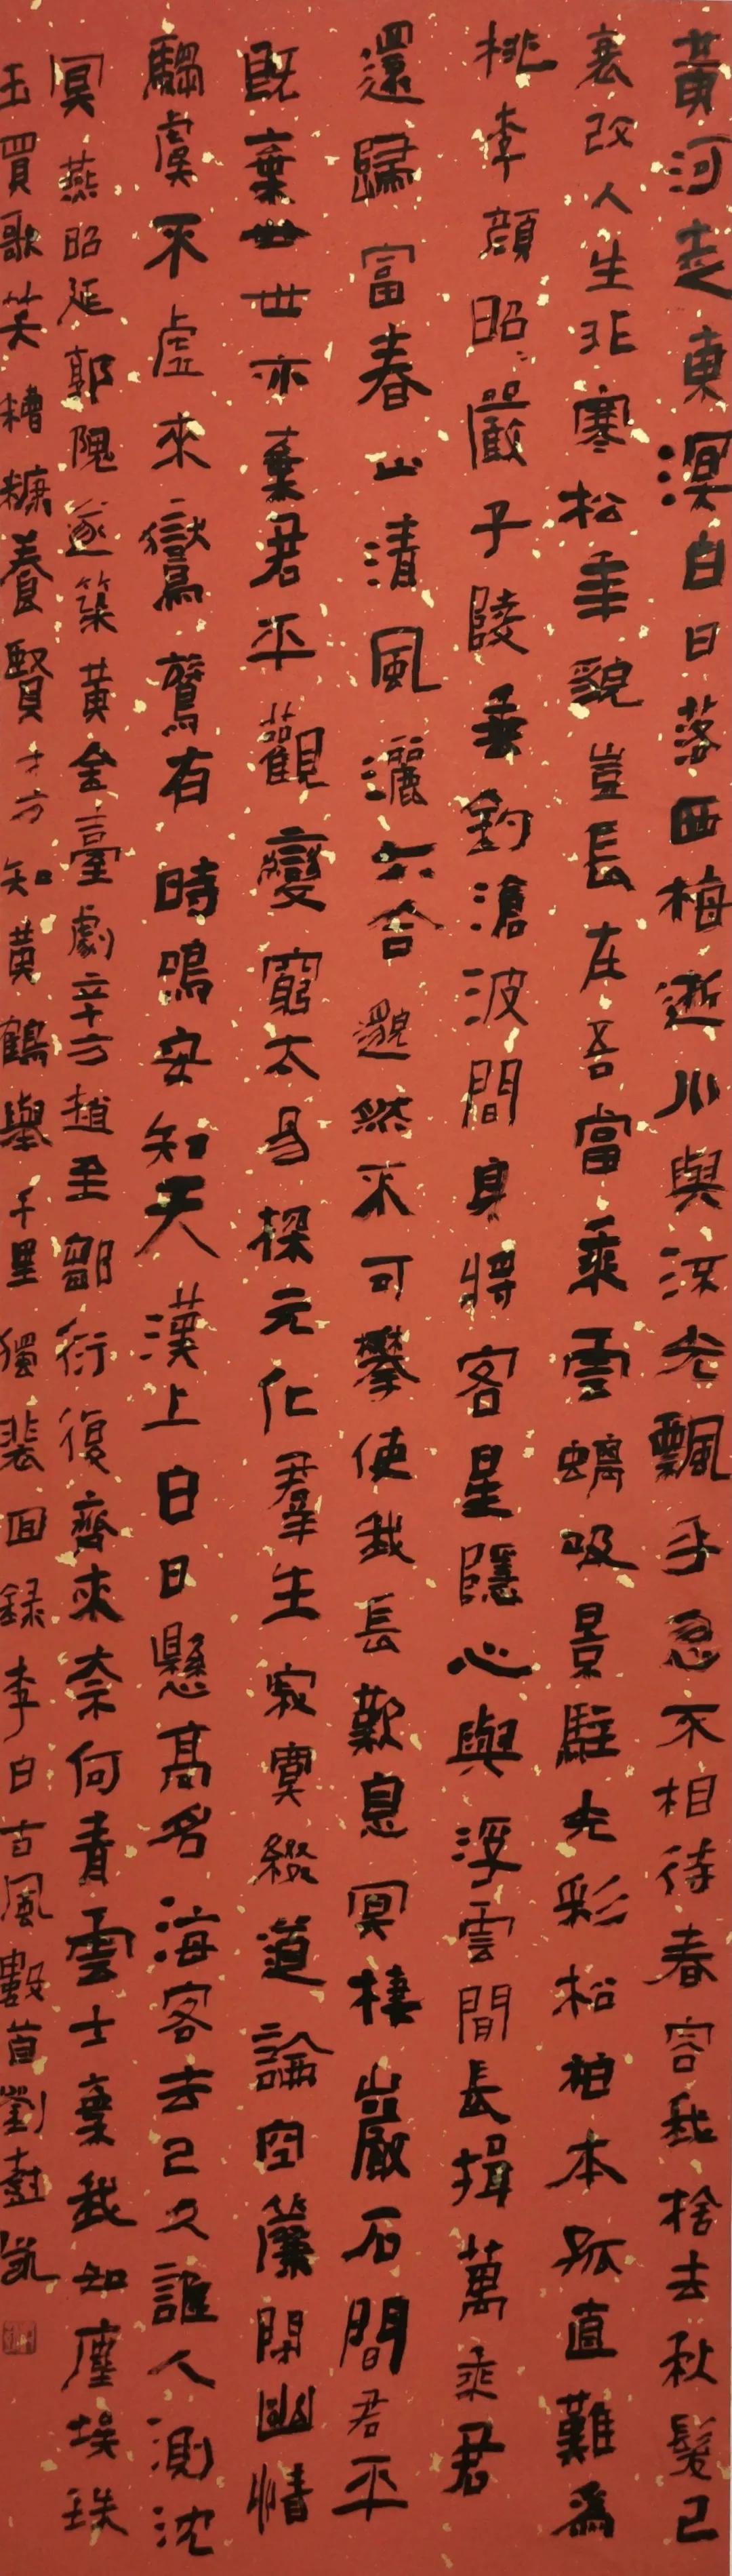 黃河走東溟白日落西海逝川與流光飄乎急不相待春容我捨去秋髮已
衰改人生非寒松年貌豈長在吾當乘雲螭吸景駐光彩松柏本孤直難為
桃李顏昭昭嚴子陵垂釣滄波間身將客星隱心與浮雲間長揖萬乘君
還歸富春山清風灑六合邈然不可攀使我長歎息冥棲巖石間君平
既棄世世亦棄君平觀變窮太易探元化羣生寂寞綴道論空簾閉幽情
騶虞不虛來鸑鷟有時鳴安知天漢上白日懸高名海客去已久誰人測沈
冥燕昭延郭隗遂築黃金臺劇辛方趙至鄒衍復齊來奈何青雲士棄我如塵埃珠
玉買歌笑糟糠養賢才方知黃鶴舉千里獨裴回錄李白古風數首劉